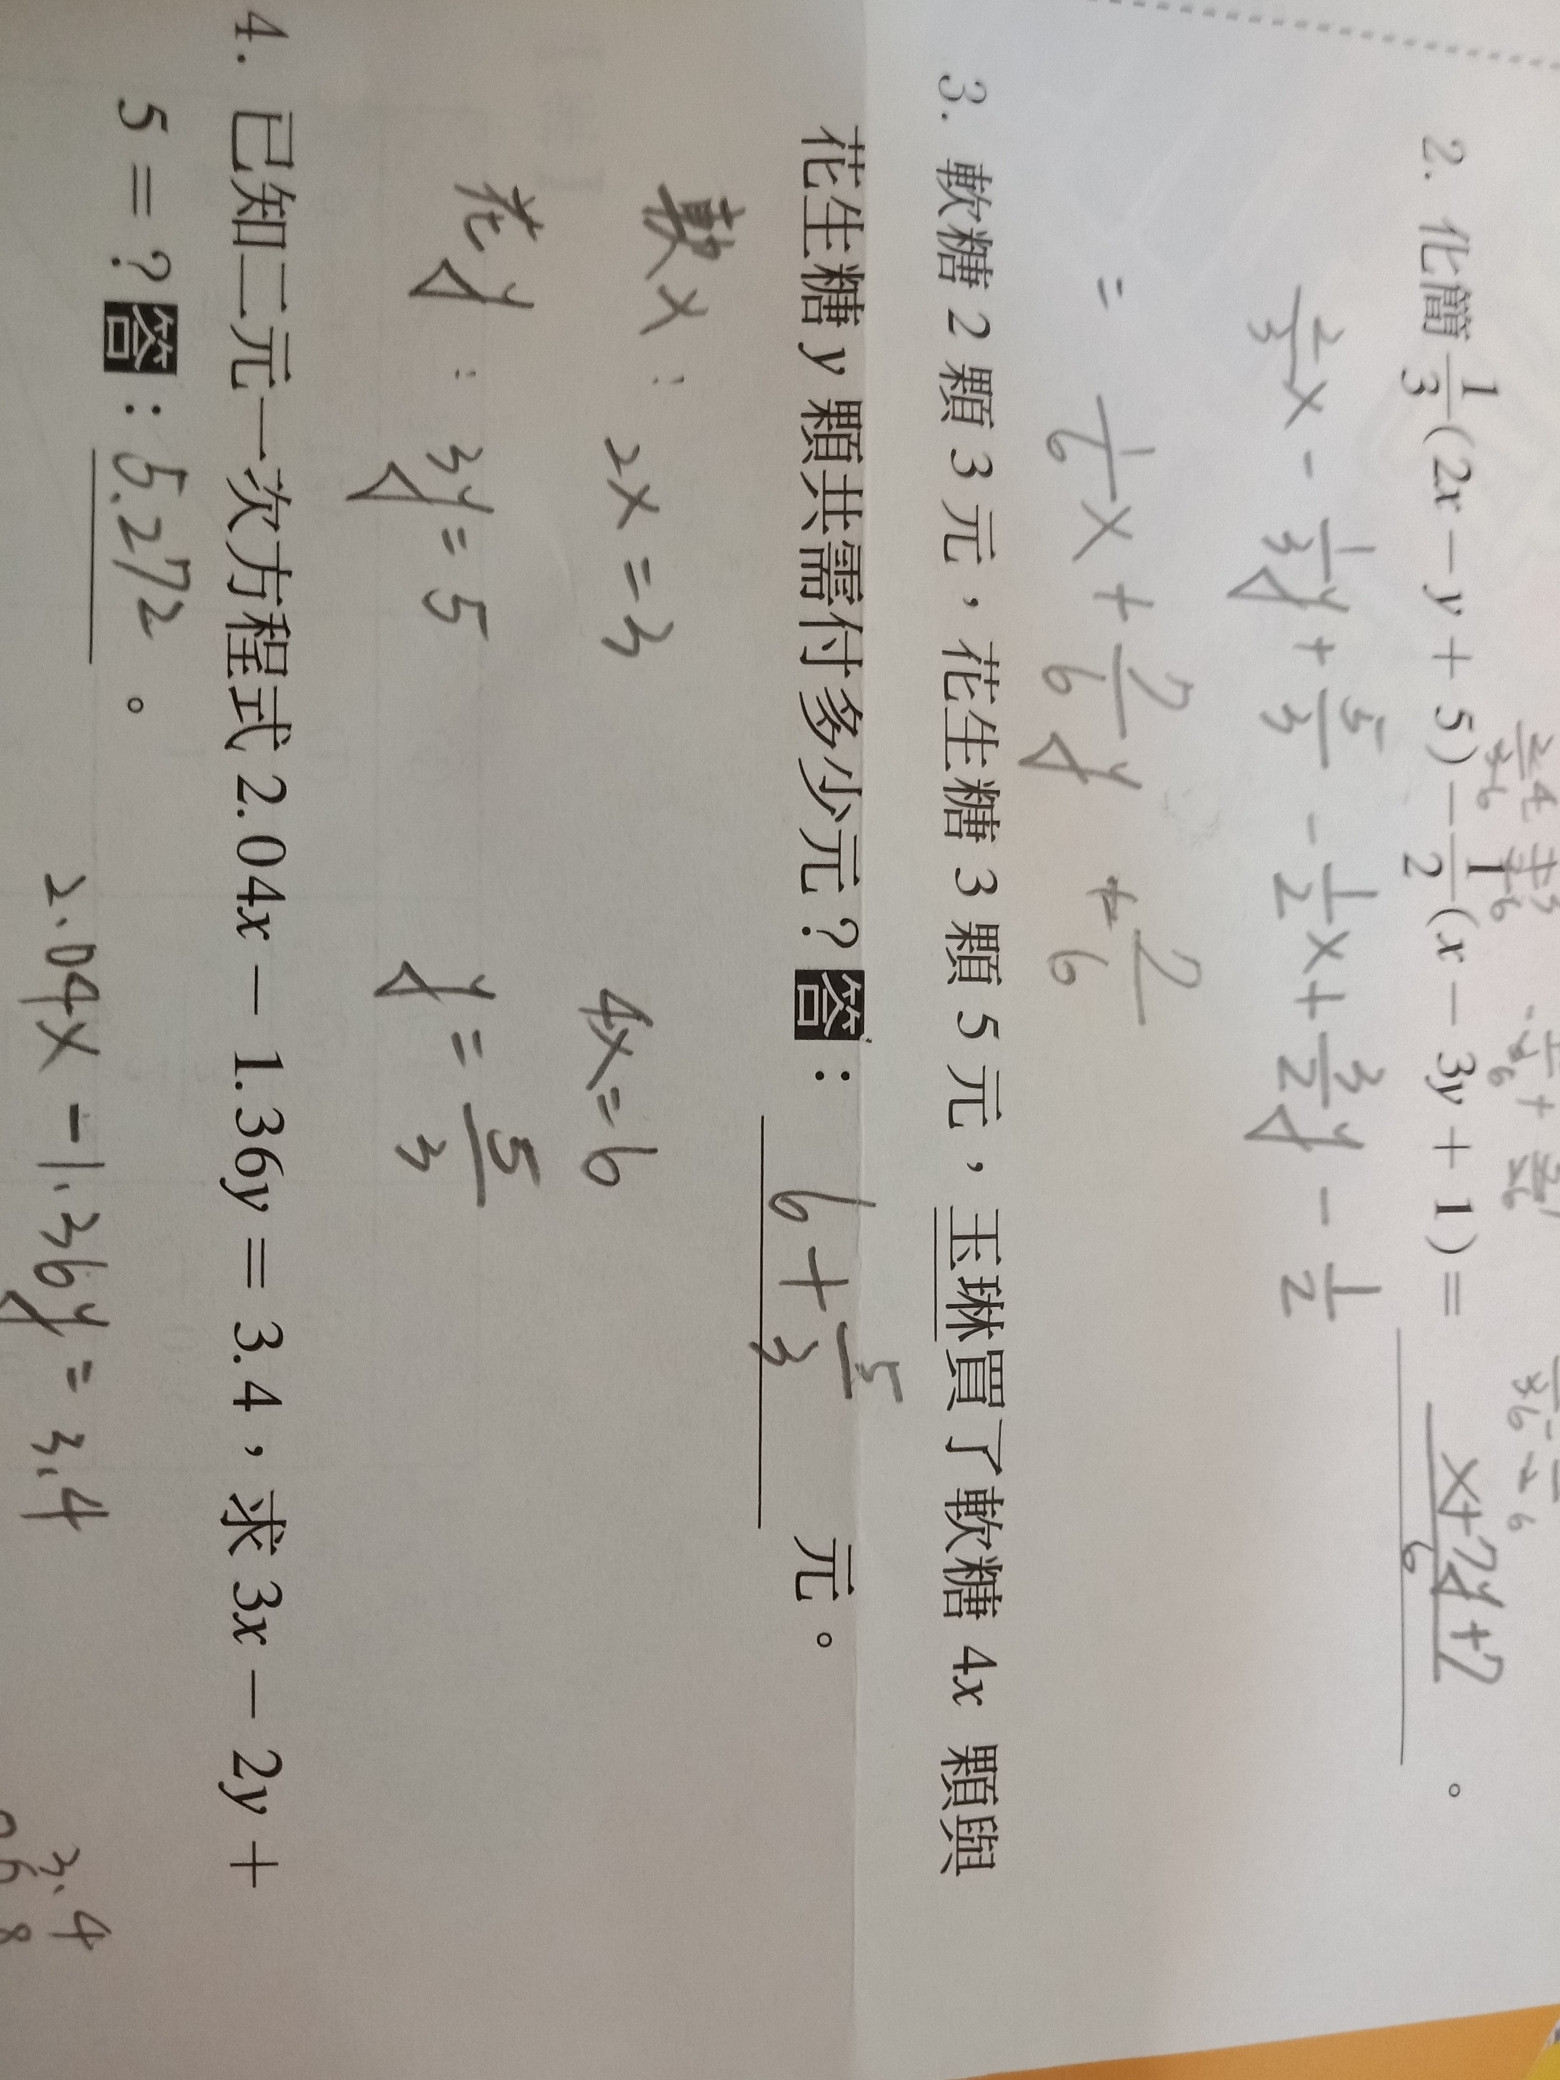 2. 化簡 1/3(2x − y + 5) − 1/2(x − 3y + 1) = x+7y+7/6 。
2/3x - 1/3y + 5/3 - 1/2x + 3/2y - 1/2
= 1/6x + 7/6y + 7/6
3. 軟糖 2 顆 3 元，花生糖 3 顆 5 元，玉琳買了軟糖 4x 顆與
花生糖 y 顆共需付多少元？答： 6+5/3 元。
軟x : 2x=3 4x=6
花y : 3y=5 y=5/3
4. 已知二元一次方程式 2.04x − 1.36y = 3.4，求 3x − 2y +
5 = ? 答：5.272。
2.04x -1.36y = 3.4
3.4